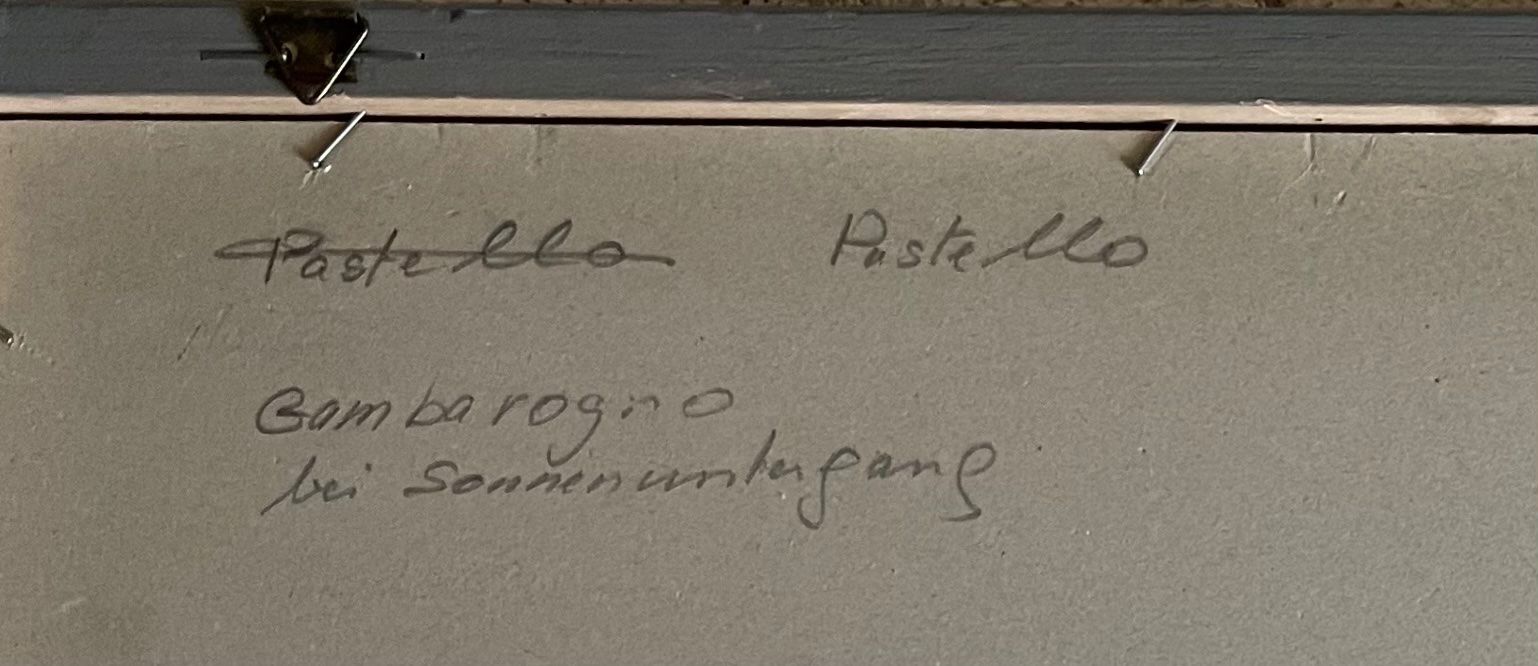 Pastello Pastello
Gambarogno
bei Sonnenuntergang